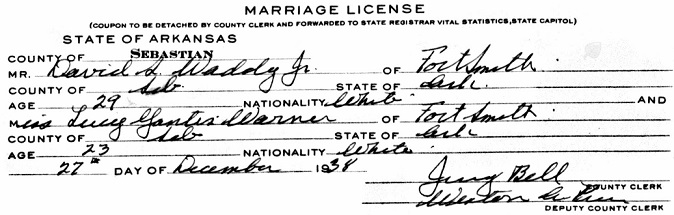 MARRIAGE LICENSE
(COUPON TO BE DETACHED BY COUNTY CLERK AND FORWARDED TO STATE REGISTRAR VITAL STATISTICS, STATE CAPITOL)
STATE OF ARKANSAS
COUNTY OF SEBASTIAN
MR. David L. Waddy Jr. OF Fort Smith
COUNTY OF Seb STATE OF Ark.
AGE 29 NATIONALITY White AND
Miss Lucy Warner OF Fort Smith
COUNTY OF Seb STATE OF Ark
AGE 23 NATIONALITY White
27th DAY OF December 1938
Bell COUNTY CLERK
DEPUTY COUNTY CLERK